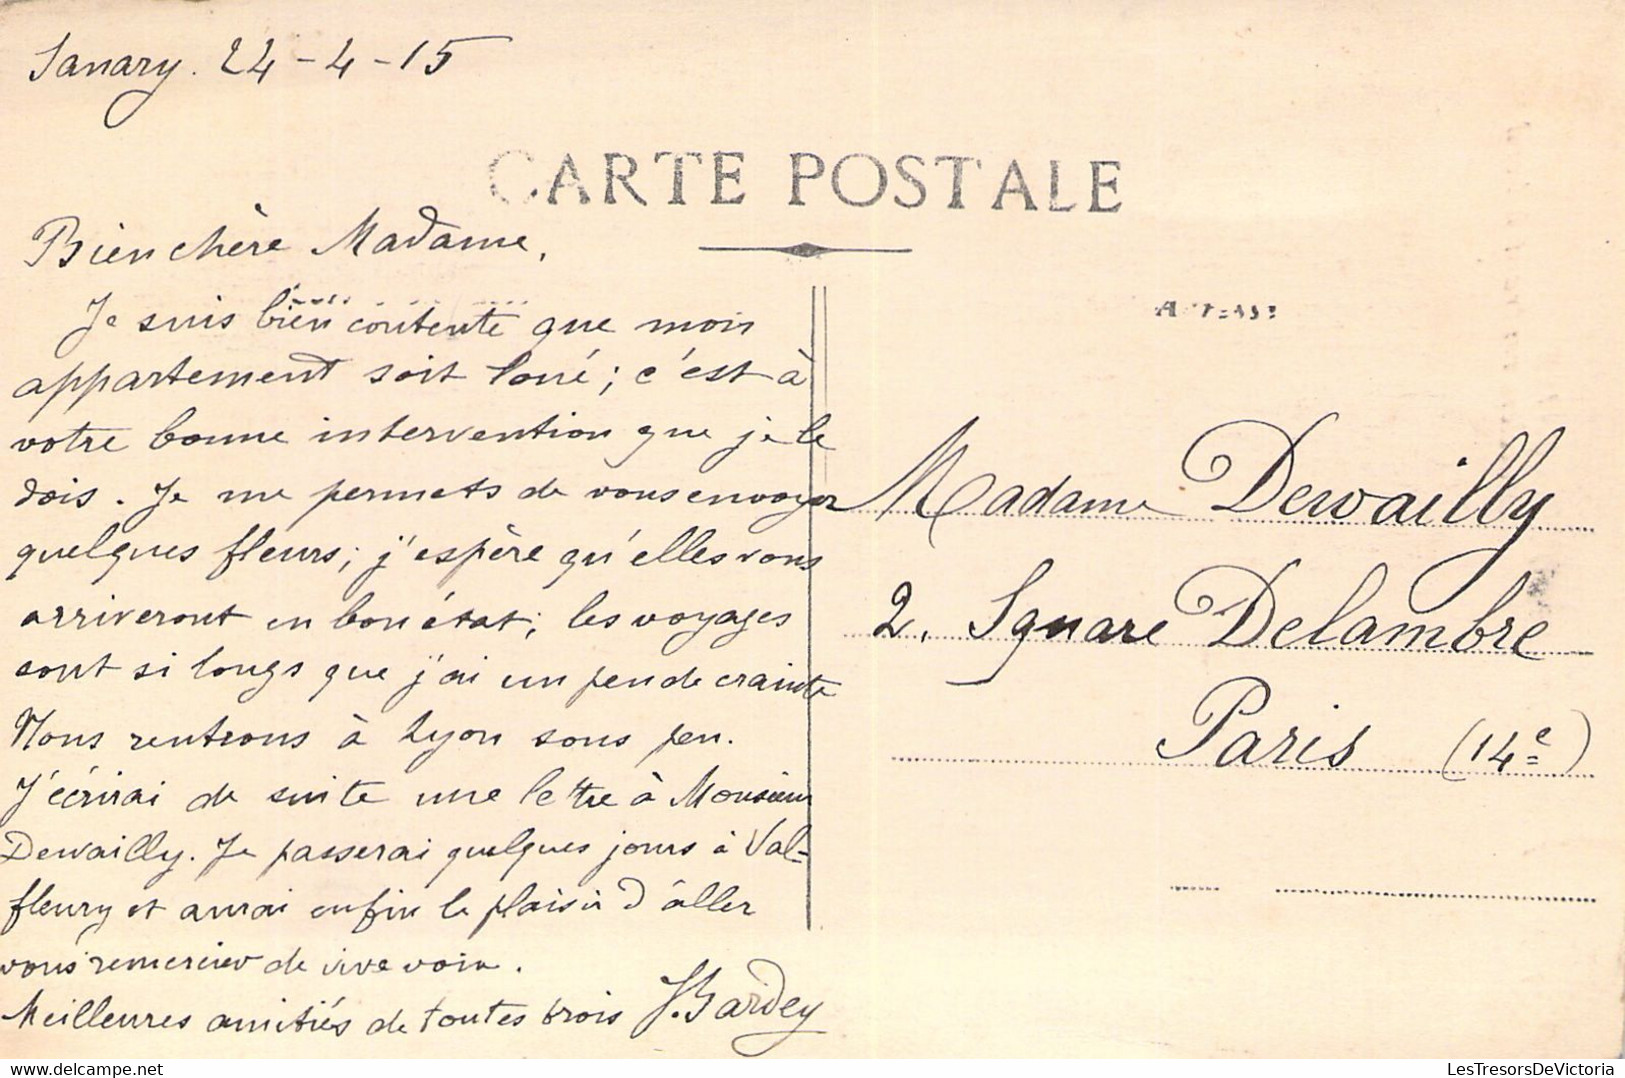 Sanary. 24-4-15
CARTE POSTALE
Bien chère Madame,
Je suis bien contente que mon
appartement soit loué; c'est à
votre bonne intervention que je le
dois. Je me permets de vous envoyer
quelques fleurs; j'espère qu'elles vous
arriveront en bon état; les voyages
sont si longs que j'ai un peu de crainte
Nous rentrons à Lyon sous peu.
J'écrirai de suite une lettre à Monsieur
Dewailly. Je passerai quelques jours à Val-
fleury et aurai enfin le plaisir d'aller
vous remercier de vive voix.
Meilleures amitiés de toutes trois J. Bardey
Madame Dewailly
2. Square Delambre
Paris (14e)
LesTresorsDeVictoria